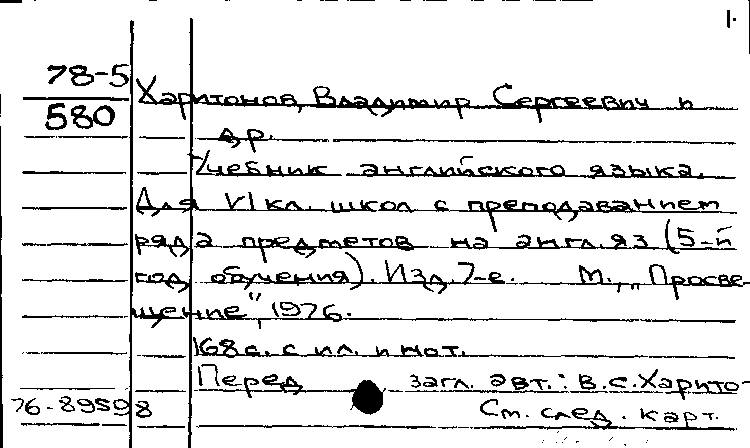 1.
78-5 Харитонов, Владимир Сергеевич и
580 др.
Учебник английского языка.
Для VI кл. школ с преподаванием
ряда предметов на англ. яз (5-й
год обучения). Изд. 7-е. М., „Просве-
щение", 1976.
168 с. с ил. и нот.
Перед загл. авт.: В.С. Харито-
76-89598 См. след. карт.